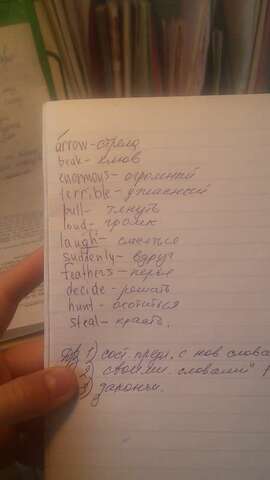 arrow - стрела
beak - клюв
enormous - огромный
terrible - ужасный
pull - тянуть
loud - громк
laugh - смеяться
suddenly - вдруг
feathers - перья
decide - решать
hunt - охотиться
steal - красть.
1) сост. предл. с нов. слова
2) своими словами
3) закончи.